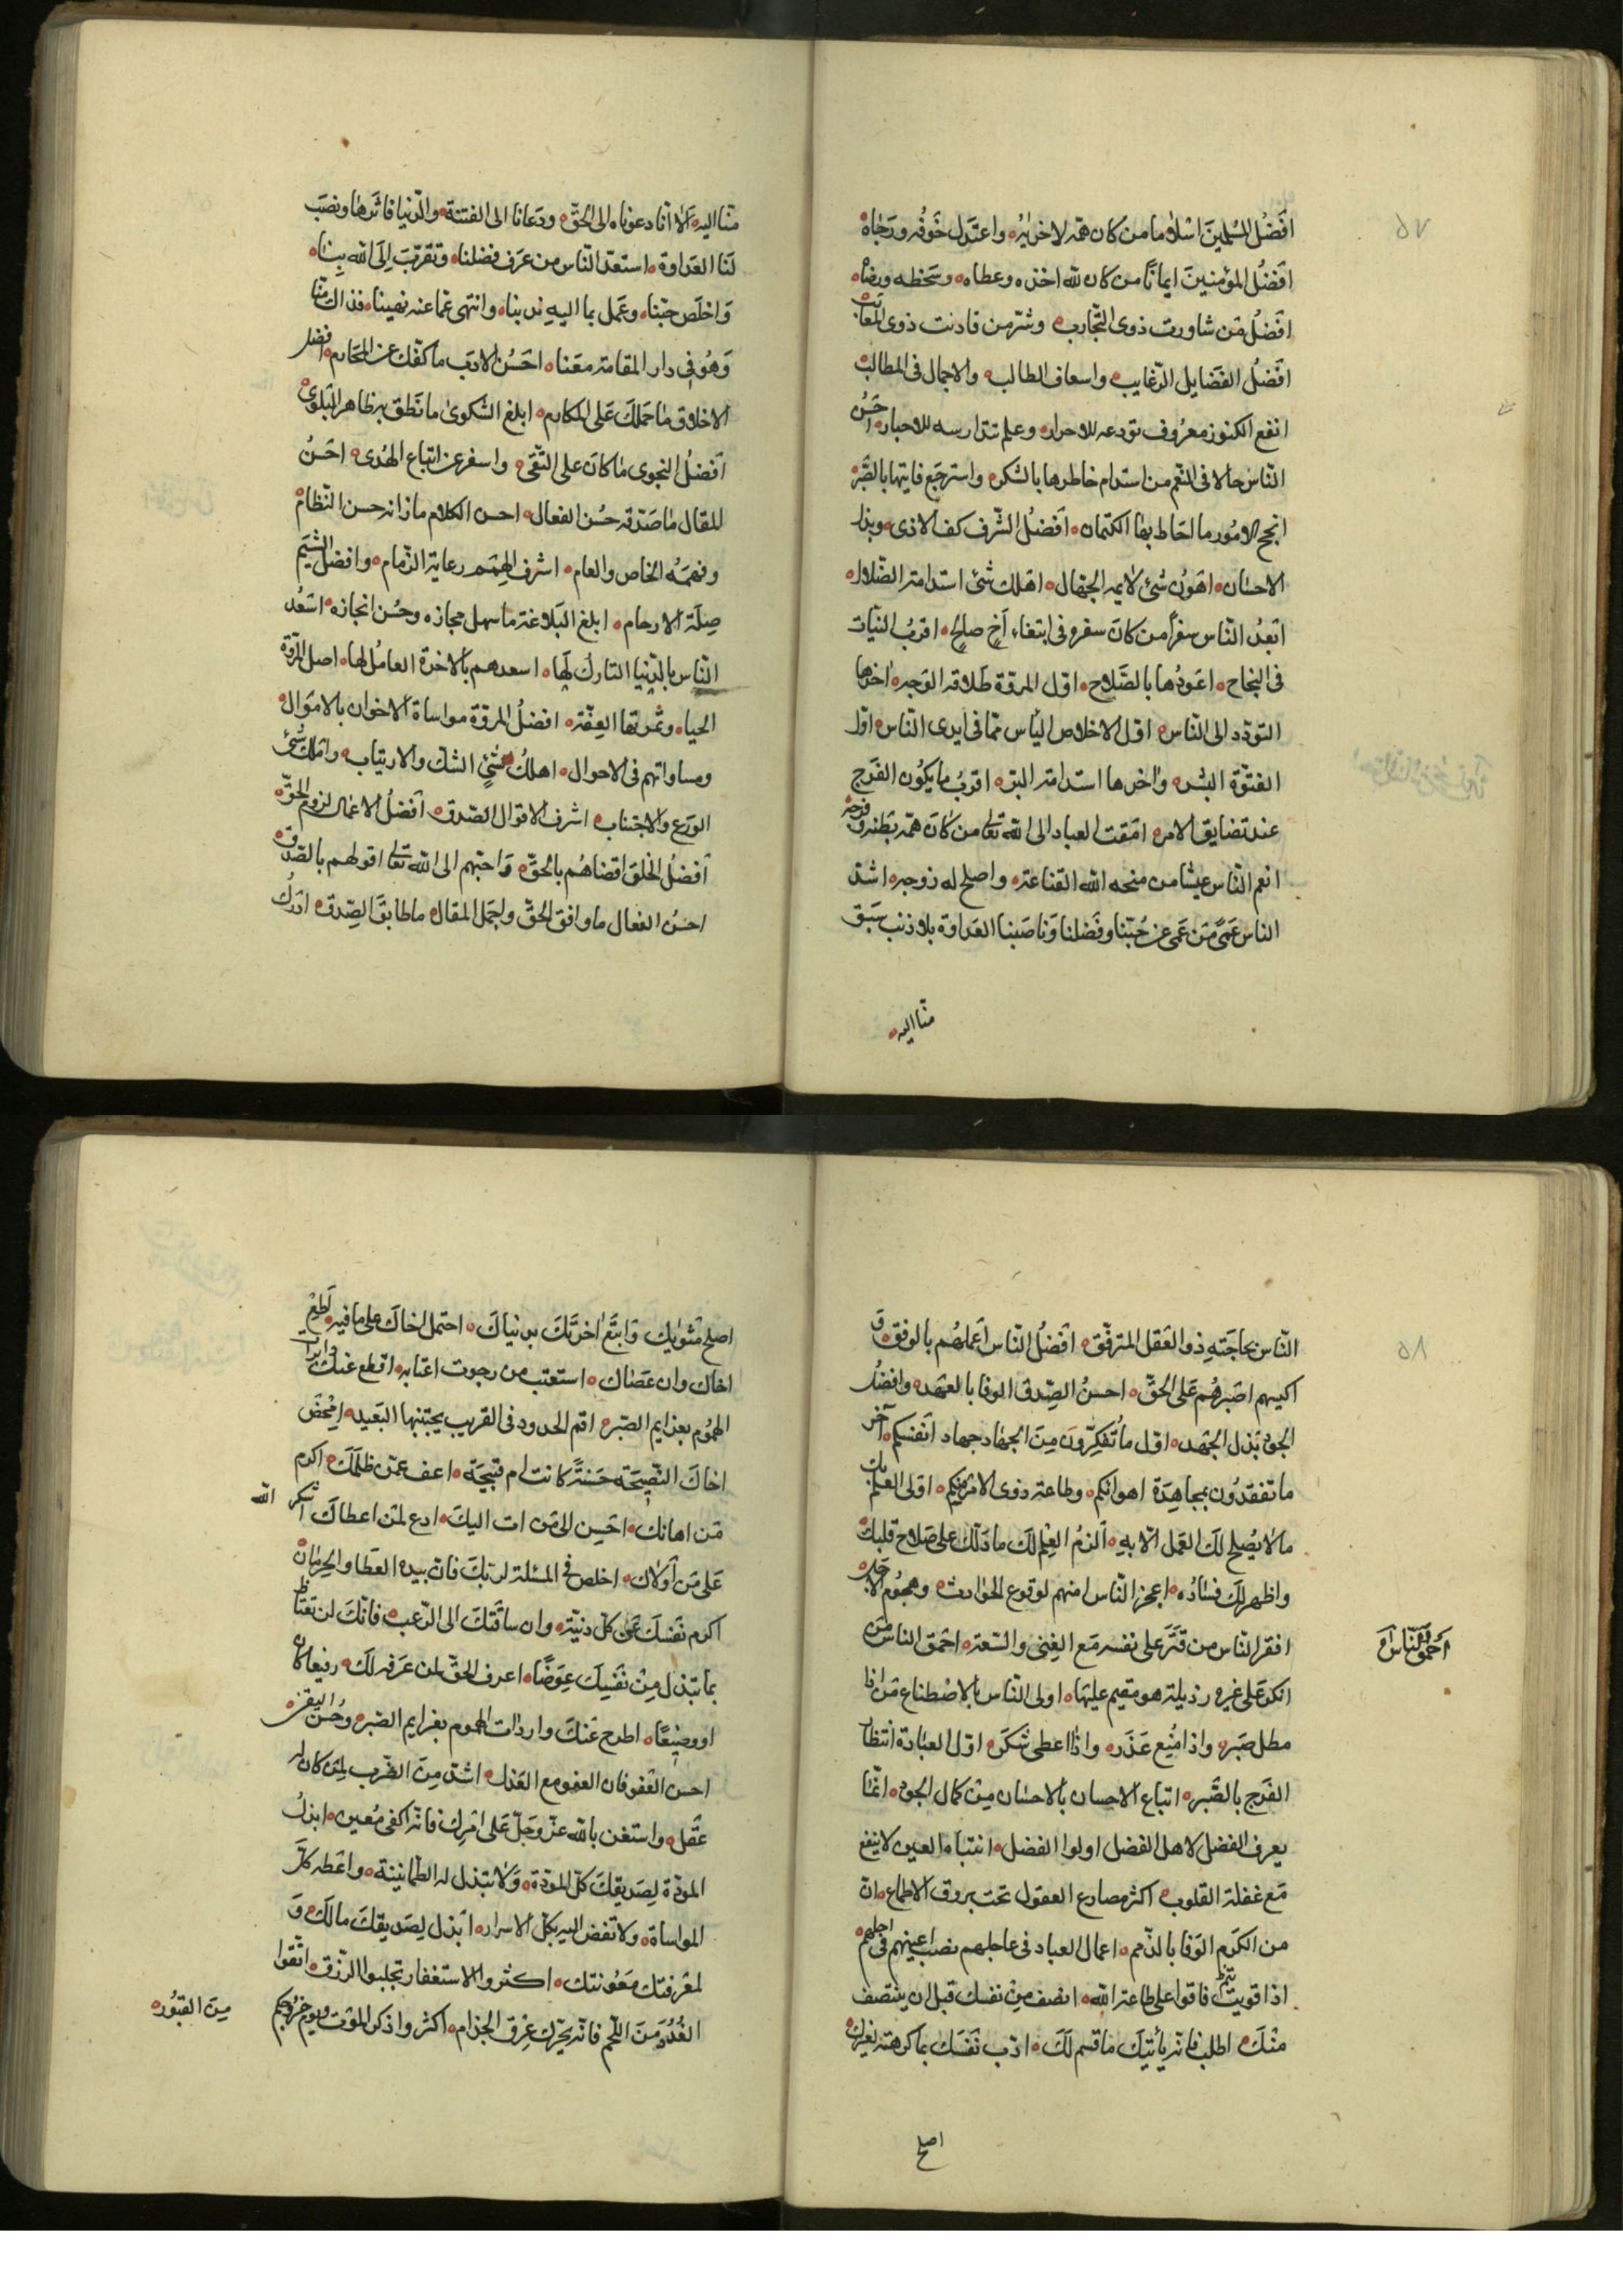 ٥٧
افَضلُ المسُلمينَ اسْلاما من كان همّه لاخرٰيهُ واعتدل خَوفُه ورَجٰاهُ
افَضلُ المؤمنينَ ايمانًا من كان للّه اخذه وعطاه وسَخطه ورضاه
افضلُ مَن شاورت ذوى التّجارب وشرّ من قارنت ذوى المعائب
افَضلُ الفَضايل الرّغايب واسعاف الطالب والاجمال فى المطالب
انفع الكنوز معرُوف تودعه للاحرار وعلم تتدارسه للاحبار احَسَنُ
النّاس حالا فى النعّم من استدام خاطرها بالشكر واسترجَع فايتها بالصَّبر
انجح الامُور ما احَاط بها الكتمان افَضلُ الشّرف كف الاذى وبذل
الاحسان اهَونُ شئ لايمه الجهّال اهَلك شئ استدامة الضّلال
ابَعدُ النّاس سفراً من كانَ سفره فى ابتغاء اخٍ صلحٍ اقربُ النيّات
فى النجاح اعَودُها بالصَّلاح اوّل المروّة طَلاقة الوَجه واخرها
التودّد الى النّاس اوّل الاخلاص اليأس ممّا فى ايدى النّاس اوّل
الفتوّة البشر واٰخرها استدامة البرّ اقربُ ما يكوُن الفَرَج
عند تضايق الامر امَقت العباد الى اللّه تعالى من كان همّه بَطنه وفرجه
انعم النّاس عيشا من منحه اللّه القناعة واصلح له زوجه اشدّ
الناس عَمىً مَن عَمى عن حُبّنا وفَضلنا ونَاصَبنا العَداوة بلا ذنب سَبَق
منّا اليه
منّا اليه الا انّا دعوناه الى الحَقّ ودَعانا الى الفتنة والدّنيا فاثَرهاٰ ونصَبَ
لنَا العَداوة استعدّ النّاس من عَرَف فضلنا وتقرّبَ اِلَى اللّه بِنٰا
وَاخلَص حبّنا وعَمل بما اليهِ ندبنا وانتهى عمّا عنه نهينا فذاك منّا
وَهُو فى دار المقامة معَنا احَسَنُ الادَب ما كفّك عن المحَارم افضل
الاخلاق ماٰ حَملكَ عَلى المكارم ابلغ الشكوىٰ ما نَطق به ظاهر البَلوىٰ
افَضلُ النجوى ماٰ كانَ على التّقىٰ واسفر عن اتباع الهُدىٰ احسَنُ
المقال ماٰ صَدّقه حُسن الفعال احسن الكلام ما زانه حسن النّظام
وفهمَه الخاص والعام اشرف الهِمَم رعاية الذّمام وافضل الشِيَم
صِلَة الارحام ابلغ البَلاغة ما سهل مجازه وحسُن انجازه اسَعُد
النّاس بالدّنيا التارك لهَا اسعدهم بالاخرة العامُل لها اصل المروّة
الحيا وثمرتها العِفّة افضلُ المروّة مواساة الاخوان بالامَوال
ومساواتهم فى الاحوال اهلكُ شئٍ الشكّ والارتياب وامَلك شئ
الوَرع والاجتناب اشرف الاقوال الصّدق افَضلُ الاعمال لزوم الحقّ
افَضلُ الخلقَ اقضاهُم بالحَقّ وَاحبّهم الى اللّه تعالى اقولهم بالصّدق
احسنُ الفعال ما وافق الحَقّ واجمَل المقال ماطابقَ الصِّدق ادَركُ
٥٨
النّاس بحاجَتهِ ذو العَقل المترفّق افَضلُ النّاس اعَملهُم بالرفق وَ
اكيسهم اصَبرهُم عَلى الحَقّ احسنُ الصّدق الوفا بالعهد وافضلُ
الجود بَذل الجُهد اوّل ما تُنكِرّونَ مِنَ الجهاٰد جهاد انفسكم آخر
ما تفقدُون مجاهِدَة اهوائكم وطاعة ذوى الامر منكم اولى العِلم بك
ما لاٰيُصلح لكَ العَمل الاّ به الَزمُ العِلم لكَ ماٰ دَلّك على صَلاح قلبك
واظهر لكَ فسَادُه اعجز النّاس امنهم لوقوع الحوٰادث وهجوُم الاجَل
افقر النّاس من قتَّر على نفسه مَع الغِنى والسّعة احَمق الناس مَن
احَمق النّاس
انكر عَلى غيره رذيلة هو مقيم عليها اولى النّاس بالاصْطناع مَن اذا
مطل صَبر واذا مُنِع عَذَر واذا اعطى شكَر اوّل العبَادة انتظا
الفَرَج بالصَّبر اتباع الاحِسان بالاحسٰان مِن كمال الجود انمّا
يعرف الفضل لاهل الفضل اولوا الفضل انتباه العين لاينفع
مَع غفلة القلوب اكثر مصارع العقول تحت بروق الاطماع انّ
من الكرَم الوَفا بالذّمم اعمال العباد فى عاجلهم نصب اعينهم فى اجلهم
اذا قويت فاقوا على طاعة اللّه انصف مِن نفسك قبل ان ينتصف
منكَ اطلب فانه يأتيكَ ماٰ قسم لكَ ادّب نفَسَك بماٰ كرهته لغيرك
اصلح
اصلح مَثوٰيك وَابتَع اٰخرتَكَ بدنياكَ احتمل اخاكَ على ما فيه اطَع
اخاك وان عصَاك استعتب من رجوت اعتابه اقطع عنك واردات
الهموُم بعزايم الصّبر اقم الحدود فى القريب يجتنبها البَعيد امِحَض
اخاكَ النّصِيحَة حَسنَةً كانت ام قبيحَة اعف عمّن ظلَمَك اكرم
مَن اهانك احَسِن الى مَن اساء اليكَ ادع لمَن اعطاكَ اشكر اللّه
عَلى مَن اَولاك اخلص فى المسئلة لربّكَ فانّ بيده العَطا والحِرمٰان
اكرم نَفسَك عَن كلّ دنيّة وان ساقَتكَ الى الرّغب فانّكَ لن تعتاض
بما تبذل مِنْ نفَسِك عِوَضًا اعرف الحقّ لمن عَرَفه لكَ رفيعا كان
او وضيعًا اطرح عَنكَ واردات الهموم بعزايم الصّبر وحُسن اليقين
احسن العَفو فان العفو مع العَدل اشدّ مِن الضّرب لمِن كان له
عَقل واستغن باللّه عزّ وَجَلّ عَلى امَرِك فانّه اكفى مُعين ابذلُ
المودّة لصَديقكَ كلّ المودّة وَلاٰ تبذل له الطمانينة واعَطه كلَّ
المواساة ولا تفض اليه بكلّ الاسرار ابَذل لِصَديقكَ مالكَ وَ
لمعَرفتك معَُونتك اكثروا الاستغفار تجلبوا الرّزق اتّقوا
الغُدُدَ مَنَ اللّحم فانّه يحرّك عِرَق الجذام اكثروا ذكر الموَت ويوم خروجكم
مِنَ القبُور